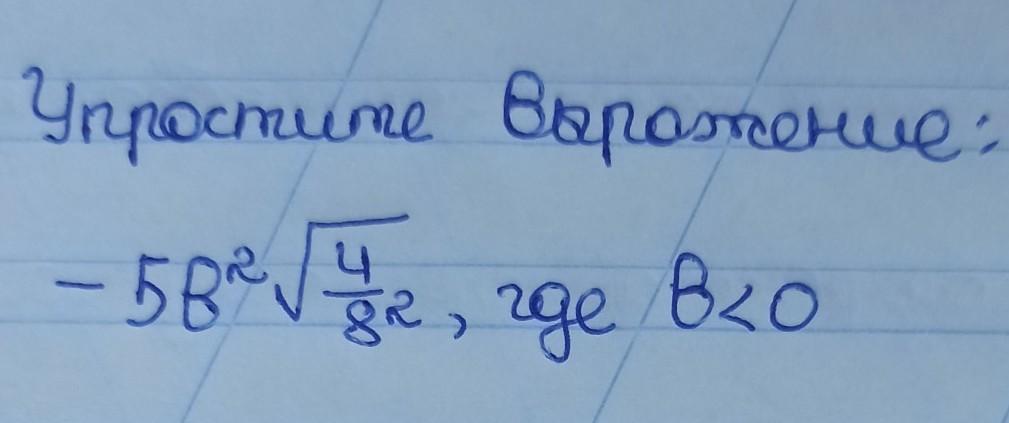 Упростите выражение:
- 5в²√(4/в²), где в<0